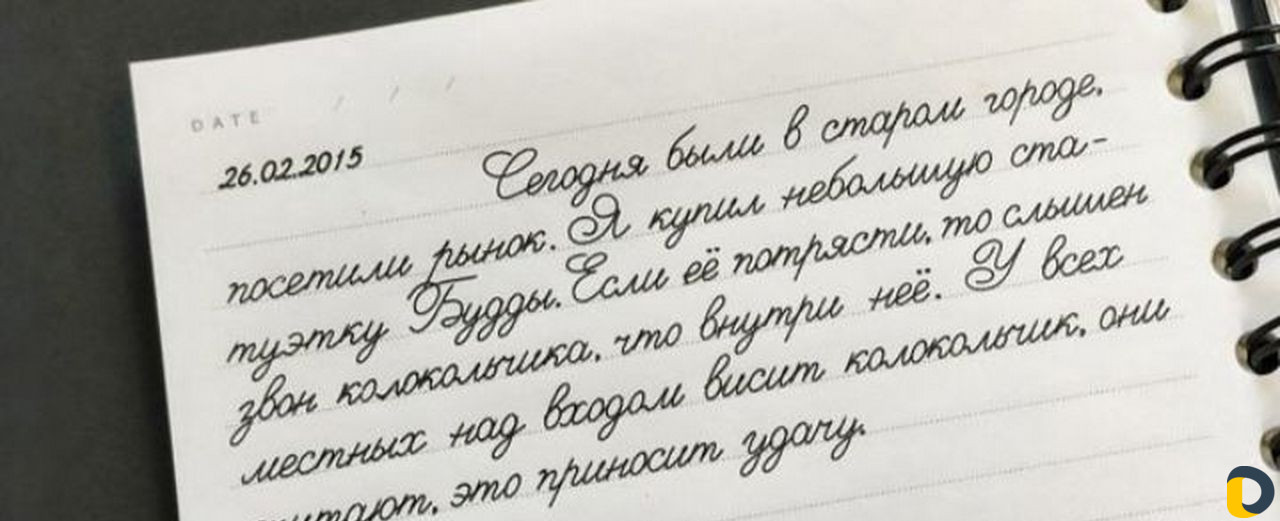 DATE / / /
26.02.2015
Сегодня были в старом городе,
посетили рынок. Я купил небольшую ста-
туэтку Будды. Если её потрясти, то слышен
звон колокольчика, что внутри неё. У всех
местных над входом висит колокольчик, они
это приносит удачу.